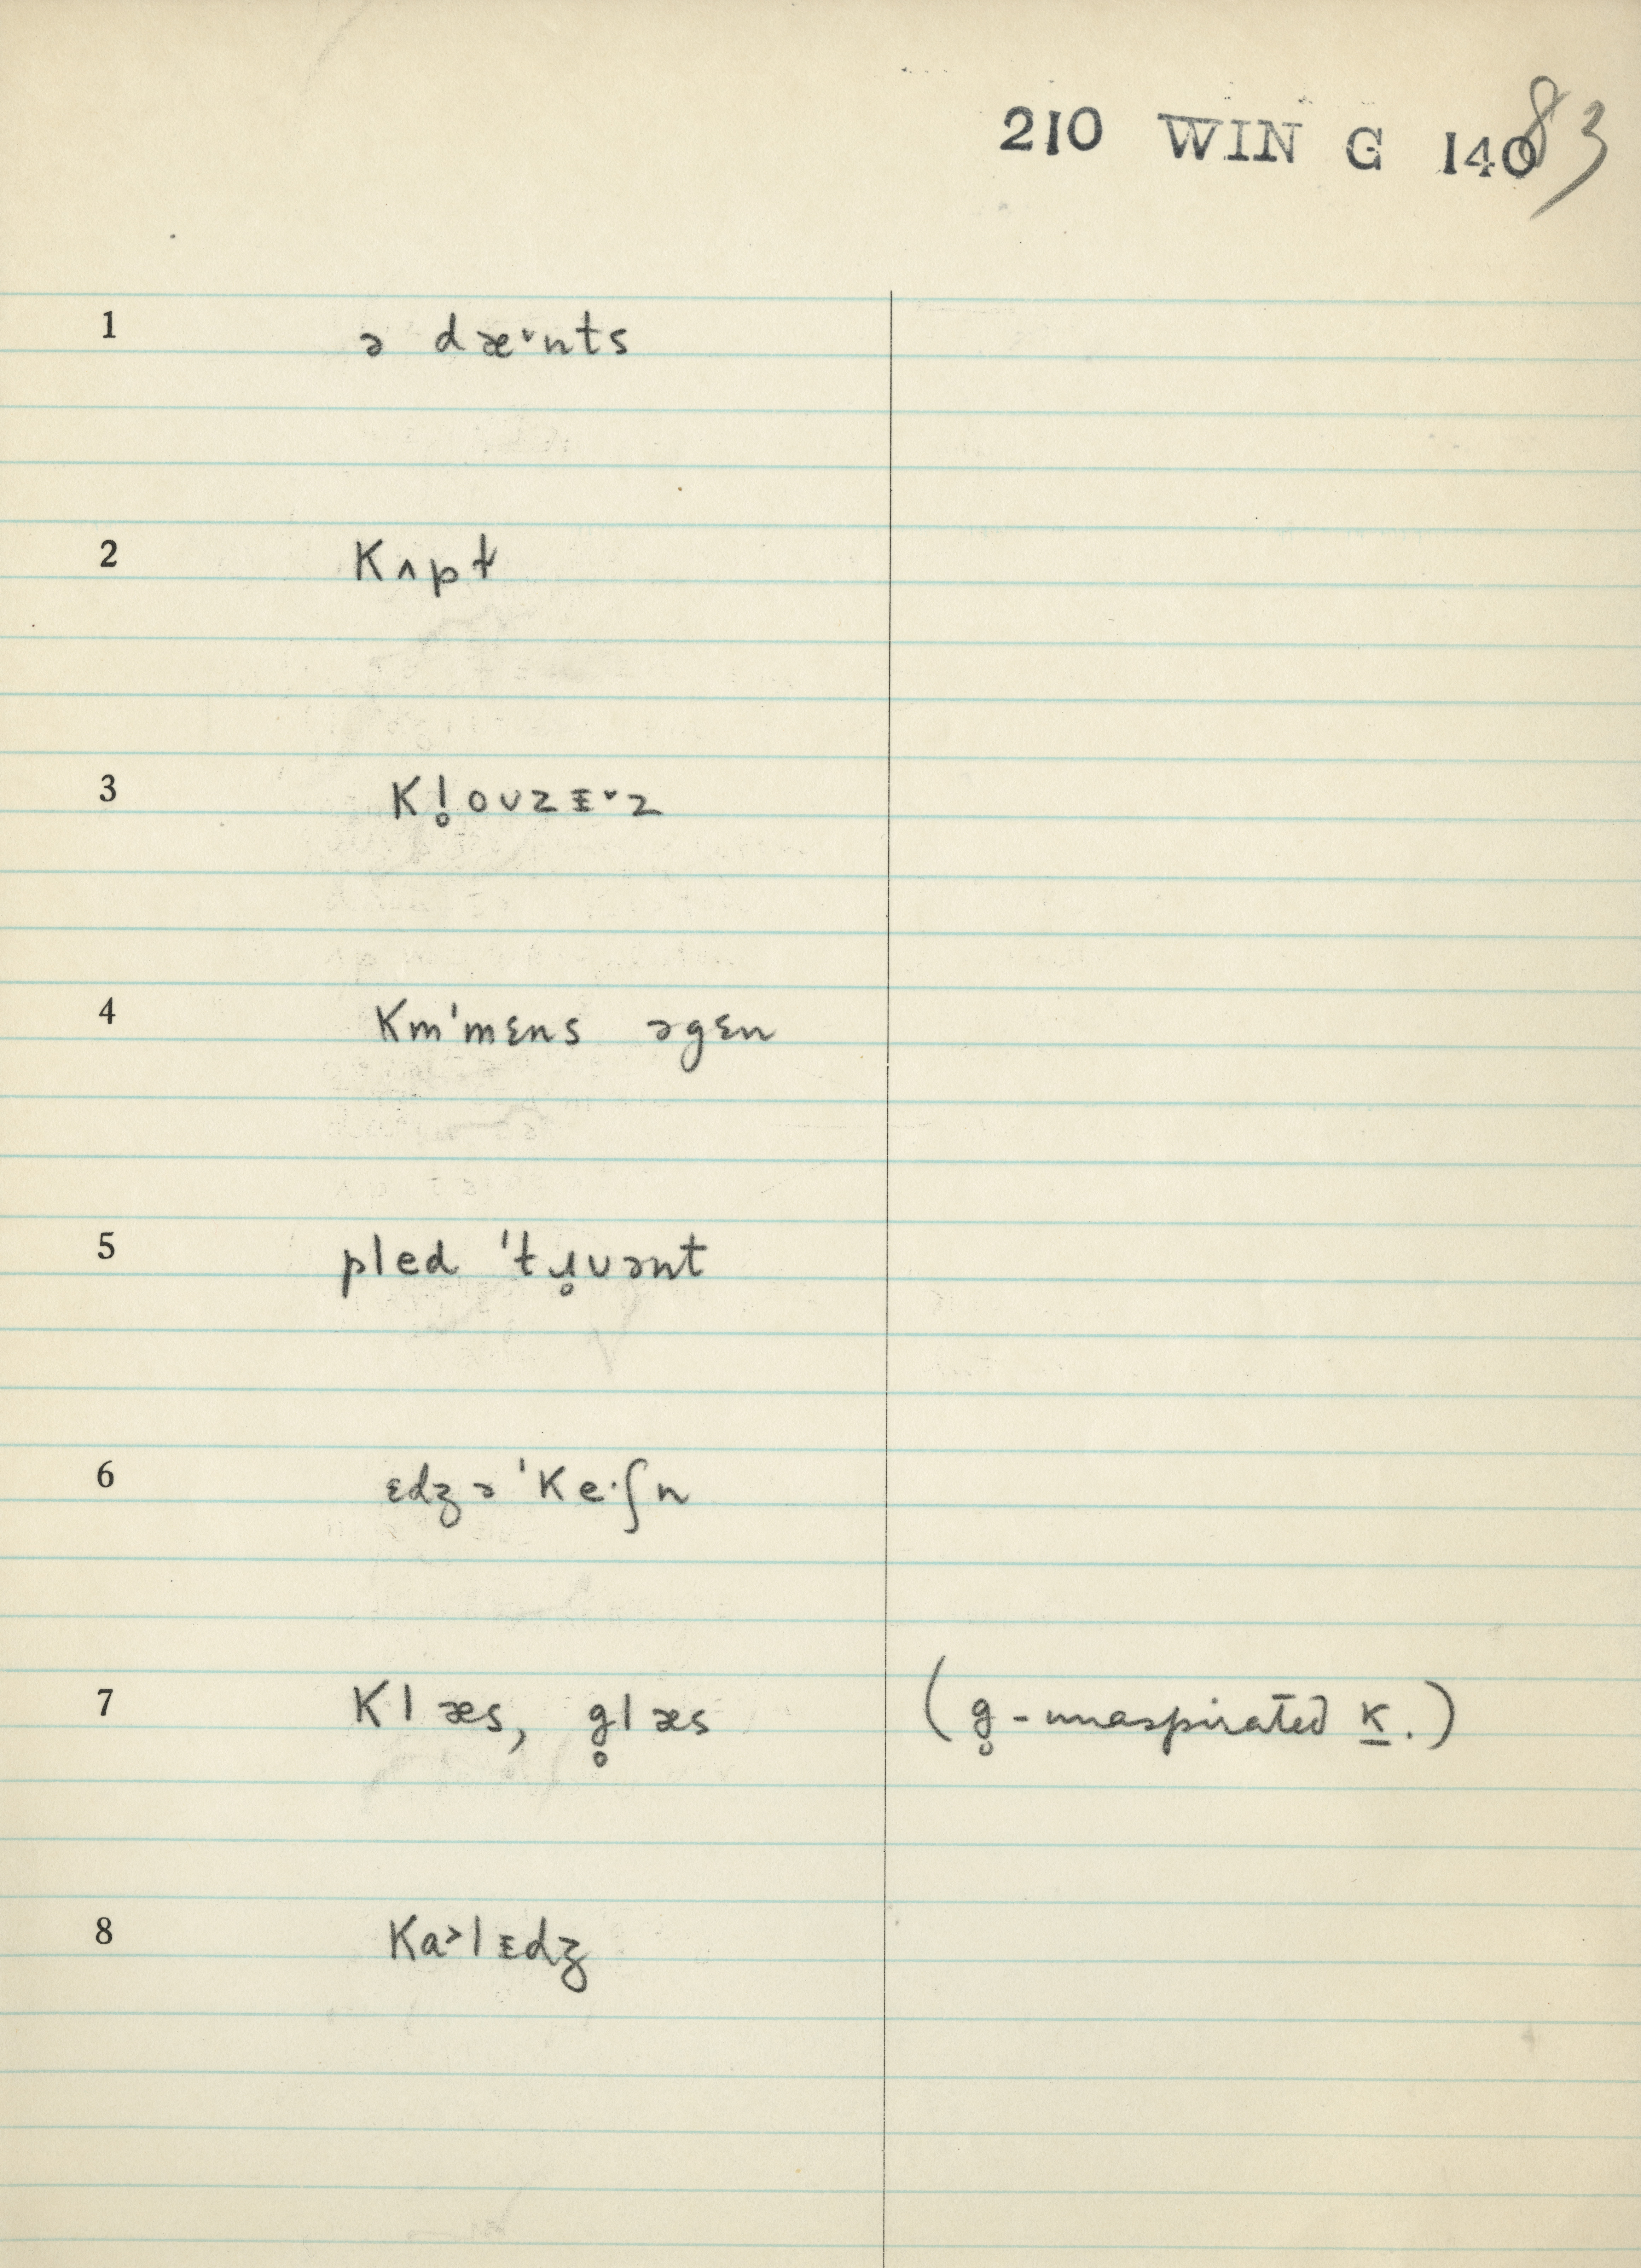 210 WIN G 140 83
1 ə dæ˅nts
2 Kʌpt
3 Kl̥oʊzᵻ˅z
4 Km̍'mɛns əgɛn
5 pled 'tɹ̥uənt
6 ɛdʒə'Ke·ʃn
7 Klæs, g̥læs (g̥-unaspirated k.)
8 Ka˃lᵻdʒ